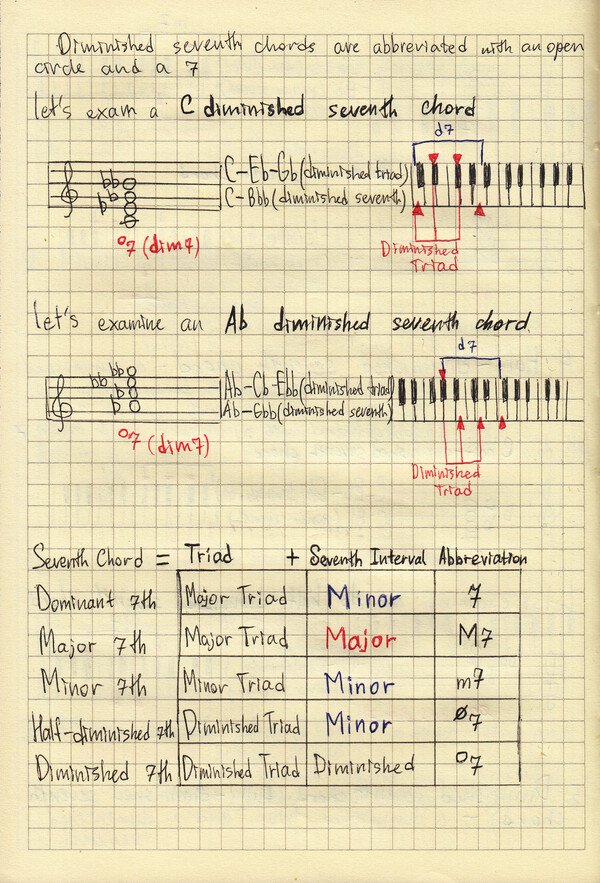 Diminished seventh chords are abbreviated with an open
circle and a 7
let's exam a C diminished seventh chord
d7
C-Eb-Gb(diminished triad)
C-Bbb(diminished seventh)
bb
b
b
o7 (dim7)
Diminished
Triad
let's examine an Ab diminished seventh chord
d7
Ab-Cb-Ebb(diminished triad)
Ab-Gbb(diminished seventh)
bb
bb
b
b
o7 (dim7)
Diminished
Triad
Seventh Chord = Triad + Seventh Interval Abbreviation
Dominant 7th Major Triad Minor 7
Major 7th Major Triad Major M7
Minor 7th Minor Triad Minor m7
Half-diminished 7th Diminished Triad Minor ø7
Diminished 7th Diminished Triad Diminished o7